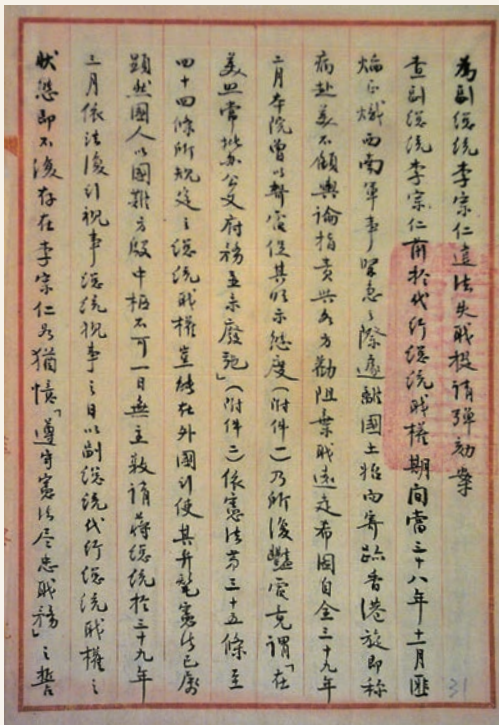 為副總統李宗仁違法失職提請彈劾案
查副總統李宗仁前於代行總統職權期間當三十八年十一月匪
燄正熾西南軍事緊急之際遽離國土始而寄跡香港旋即稱
病赴美不顧輿論指責與各方勸阻棄職遠走希圖自全三十九年
二月本院曾以齊電促其明示態度(附件一)乃所復豔電竟謂「在
美照常批答公文府務並未廢弛」(附件二)依憲法第三十五條至
四十四條所規定之總統職權豈能在外國行使其弁髦憲法已屬
顯然國人以國難方殷中樞不可一日無主敦請蔣總統於三十九年
三月依法復行視事總統視事之日以副總統代行總統職權之
狀態即不復存在李宗仁如猶憶「遵守憲法尽忠職務」之誓
31